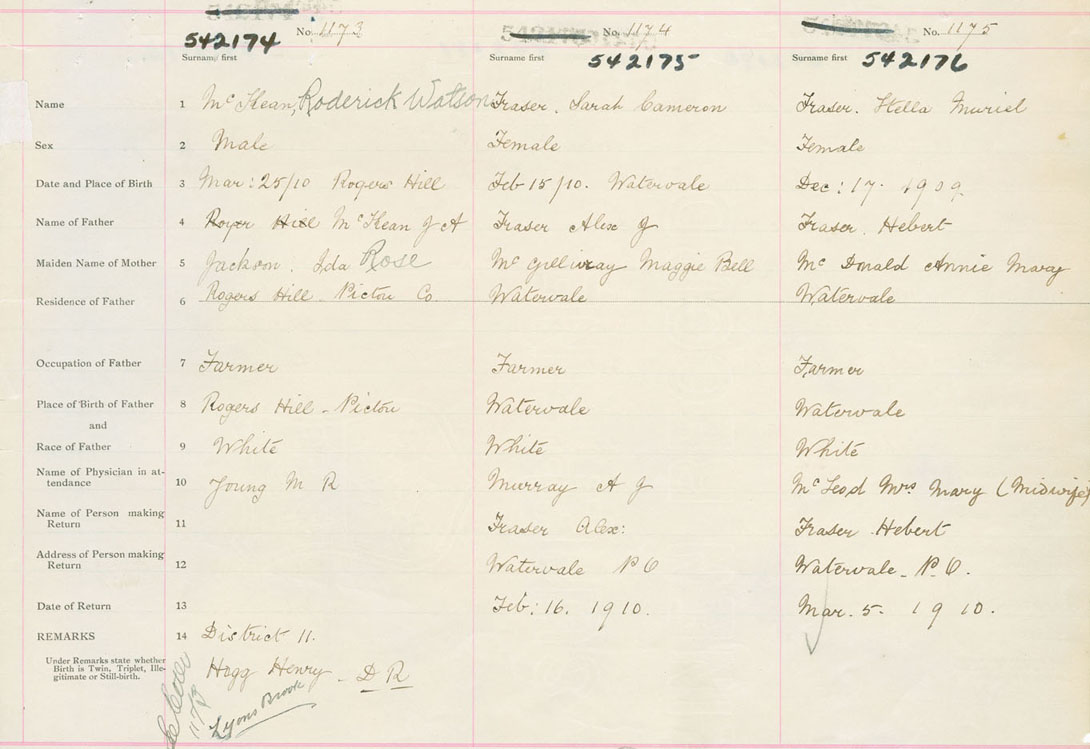 No. 1173 No. 1174 No. 1175
542174 542175 542176
Surname first Surname first Surname first
Name 1 McKean, Roderick Watson Fraser. Sarah Cameron Fraser. Stella Muriel
Sex 2 Male Female Female
Date and Place of Birth 3 Mar: 25/10 Rogers Hill Feb 15/10. Watervale Dec: 17. 1909
Name of Father 4 Roger Hill McKean J A Fraser Alex J Fraser. Hebert
Maiden Name of Mother 5 Jackson. Ida Rose McGillivray Maggie Bell McDonald Annie Mary
Residence of Father 6 Rogers Hill - Pictou Co. Watervale Watervale
Occupation of Father 7 Farmer Farmer Farmer
Place of Birth of Father 8 Rogers Hill - Pictou Watervale Watervale
and
Race of Father 9 White White White
Name of Physician in at-
tendance 10 Young M R Murray A J McLeod Mrs Mary (Midwife)
Name of Person making
Return 11 Fraser Alex: Fraser Hebert
Address of Person making
Return 12 Watervale P O Watervale - P.O.
Date of Return 13 Feb: 16. 1910. Mar. 5. 1910.
REMARKS 14 District 11.
Under Remarks state whether
Birth is Twin, Triplet, Ille-
gitimate or Still-birth.
Hogg Henry - D R
Lyons Brook
1173